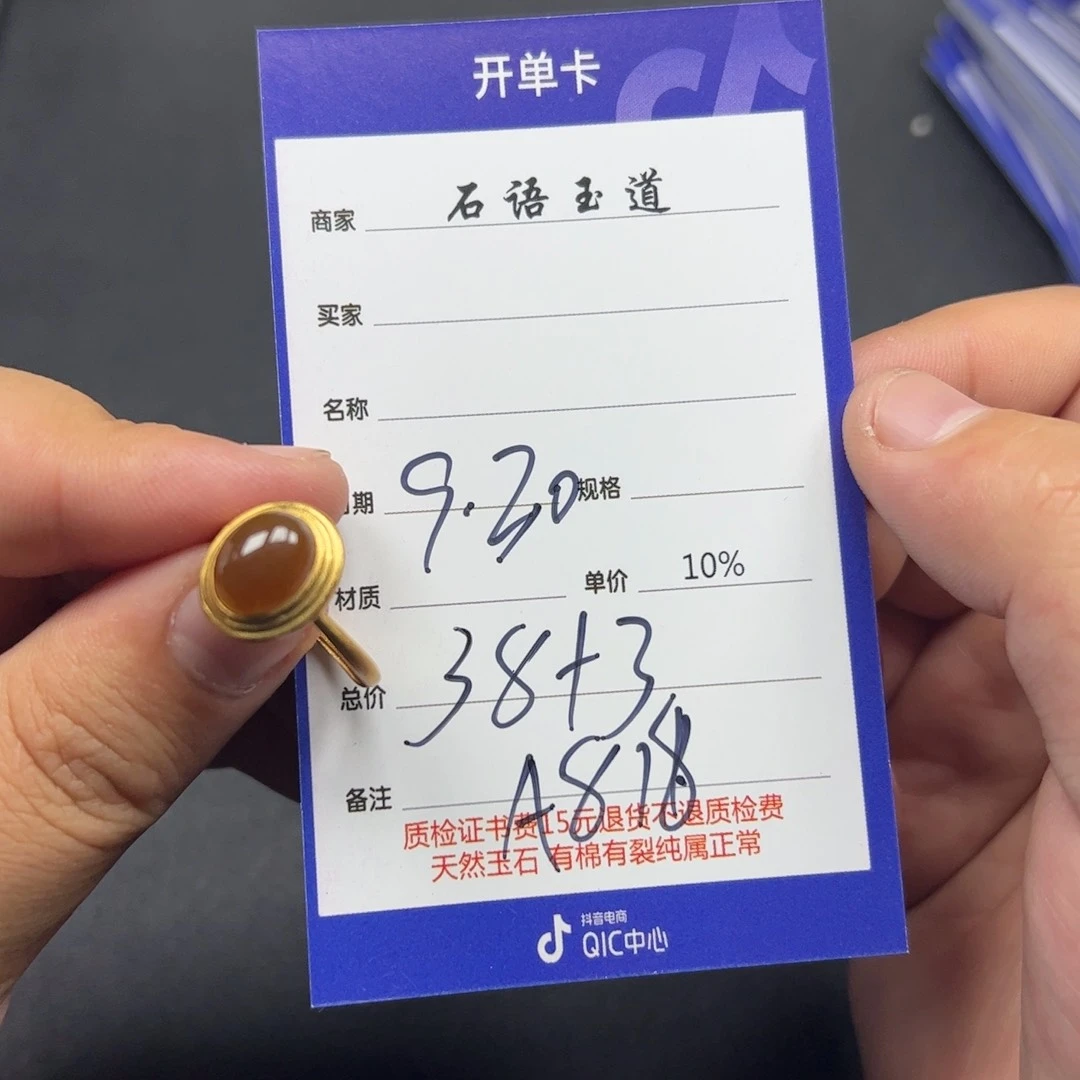 开单卡
商家 石语玉道
买家
名称
期 9.30 规格
材质 单价 10%
总价 38+3
备注 A818
质检证书费15元退货不退质检费
天然玉石 有棉有裂纯属正常
抖音电商
QIC中心